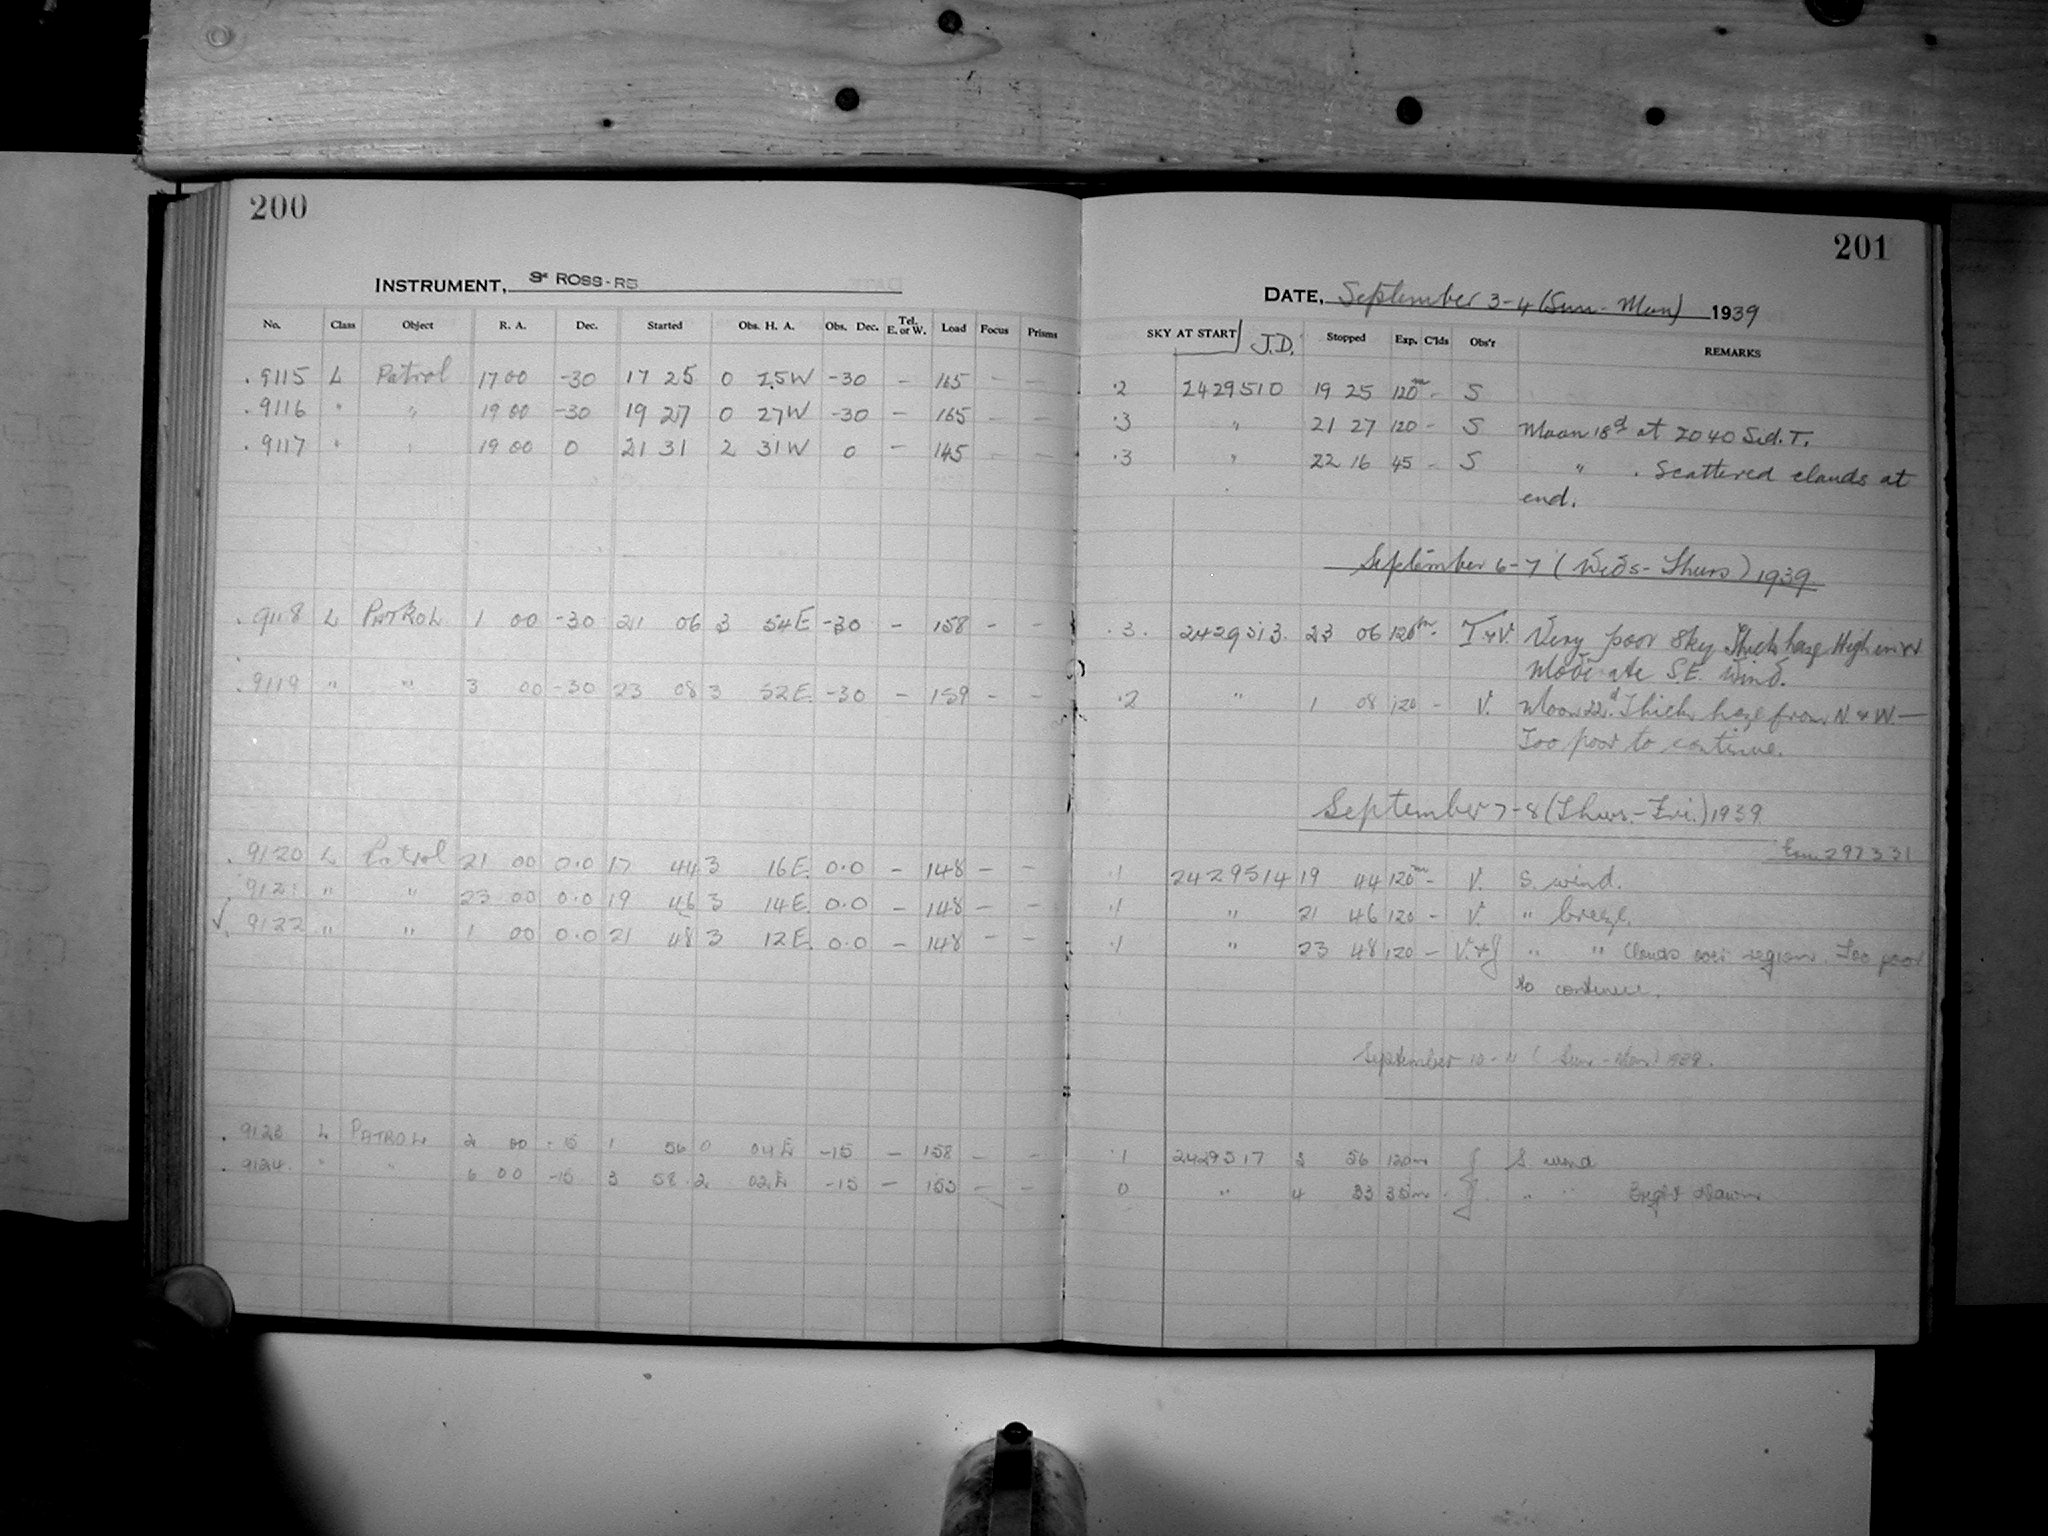 200
INSTRUMENT, 3" ROSS-RB
No. Class Object R. A. Dec. Started Obs. H. A. Obs. Dec. Tel. E. or W. Load Focus Prisms
. 9115 L Patrol 17 00 -30 17 25 0 25W -30 - 165 - -
. 9116 " " 19 00 -30 19 27 0 27W -30 - 165
. 9117 " " 19 00 0 21 31 2 31W 0 - 145 - -
. 9118 L PATROL 1 00 -30 21 06 3 54E -30 - 158 - -
. 9119 " " 3 00 -30 23 08 3 52E -30 - 159 - -
. 9120 L Patrol 21 00 0.0 17 44 3 16E. 0.0 - 148 - -
. 9121 " " 23 00 0.0 19 46 3 14E. 0.0 - 148 - -
√. 9122 " " 1 00 0.0 21 48 3 12E. 0.0 - 148 - -
. 9123 L PATROL 2 00 -15 1 56 0 04E -15 - 158 - -
. 9124 " " 6 00 -15 3 58 2 02E -15 - 153 - -
201
DATE, September 3-4 (Sun-Mon) 1939
SKY AT START J.D. Stopped Exp. C'lds Obs'r REMARKS
.2 2429510 19 25 120m - S
.3 " 21 27 120 - S Moon 18d at 2040 Sid. T.
.3 " 22 16 45 - S " . Scattered clouds at
end.
September 6-7 (Weds-Thurs) 1939
.3. 2429513. 23 06 120m - T&V. Very poor sky Thick haze High
Moderate S.E. Wind.
.2 " 1 08 120 - V. Moon 22d. Thick haze from N. & W. —
Too poor to continue.
September 7-8 (Thurs.-Fri.) 1939
297331
.1 2429514 19 44 120m - V. S. wind.
.1 " 21 46 120 - V. " breeze.
.1 " 23 48 120 - V.& J " " Clouds over region. Too poor
to continue.
September 10-11 (Sun-Mon) 1939.
.1 2429517 3 56 120m J S. wind
0 " 4 33 35m J " " Bright dawn